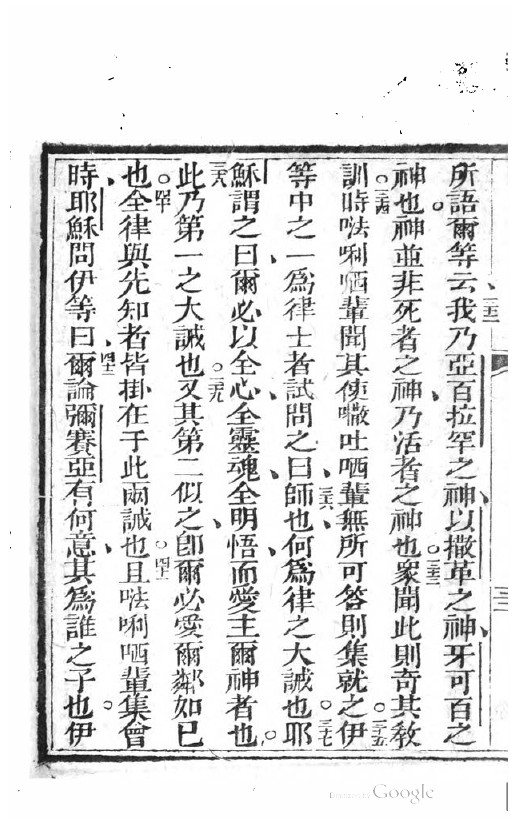 所語爾等云三二我乃亞百拉罕之神以撒革之神牙可百之
神也神並非死者之神乃活者之神也三三衆聞此則奇其敎
訓三四時㗲唎哂輩聞其使𠹌吐哂輩無所可答則集就之三五伊
等中之一爲律士者試問之曰三六師也何爲律之大誡也三七耶
穌謂之曰爾必以全心全靈魂全明悟而愛主爾神者也
三八此乃第一之大誡也三九又其第二似之卽爾必愛爾鄰如已
也四十全律與先知者皆掛在于此兩誡也四一且㗲唎哂輩集會
時耶穌問伊等曰四二爾論彌賽亞有何意其爲誰之子也伊
Google